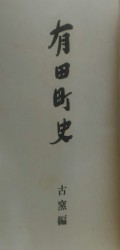 有田町史
古窯編